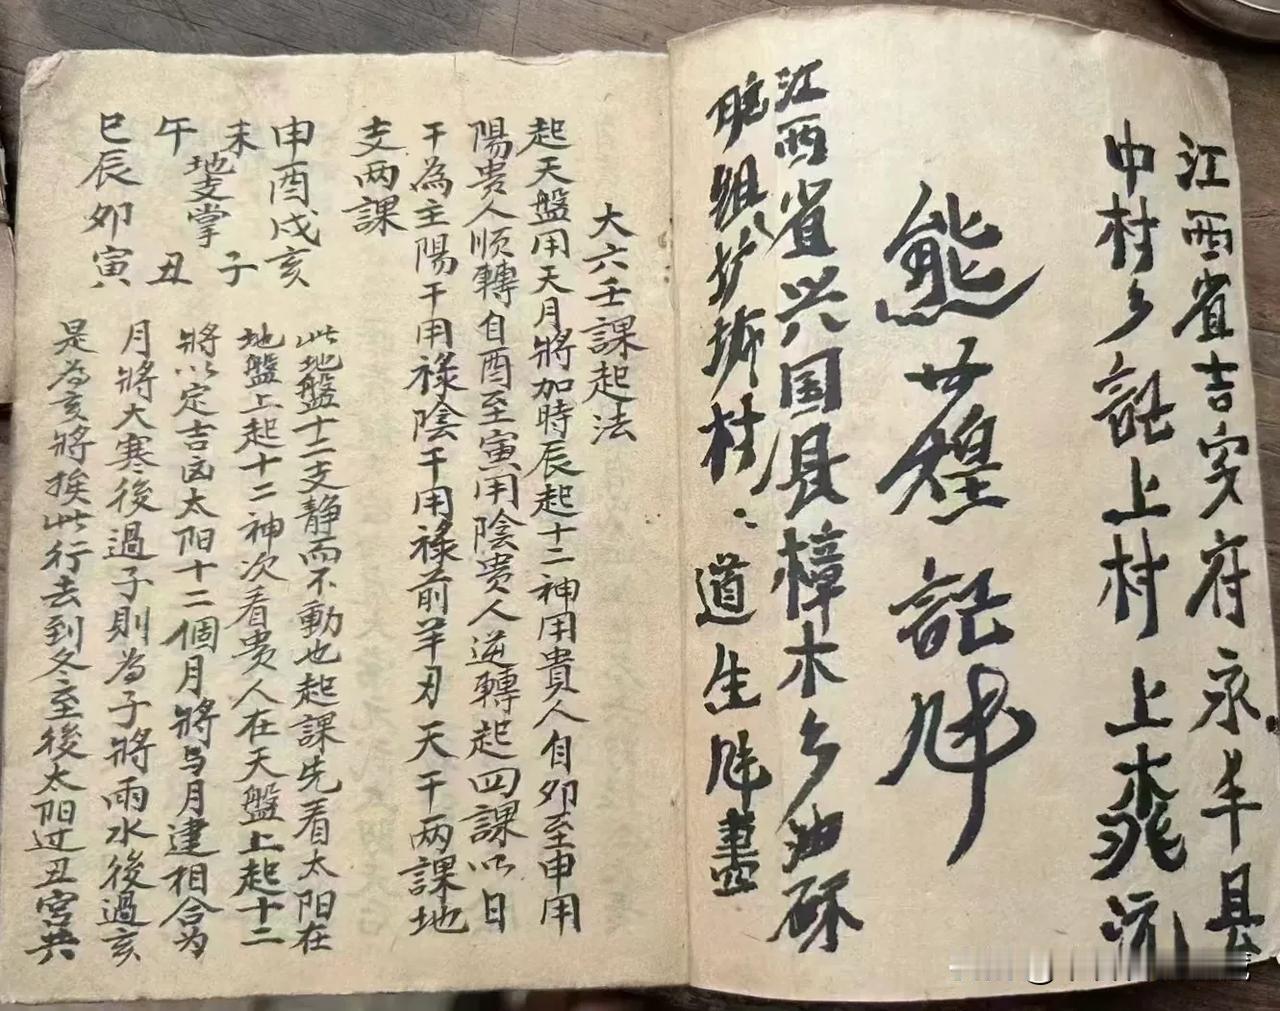 江西省吉安府永丰县
中村乡 上村上 坑
熊世煌記
江西省兴国县樟木乡油
组 村 道生 畫
大六壬課起法
起天盤用天月將加時辰起十二神用貴人自卯至申用
陽貴人順轉自酉至寅用陰贵人逆轉起四課以日
干為主陽干用禄陰干用禄前羊刃天干两課地
支两課
申酉戌亥
未 子
地支掌
午 丑
巳辰卯寅
此地盤十二支静而不動也起課先看太阳在
地盤上起十二神次看贵人在天盤上起十二
將以定吉凶太阳十二個月將与月建相合为
月將大寒後過子則為子將雨水後過亥
是为亥將挨此行去到冬至後太阳过丑宫共